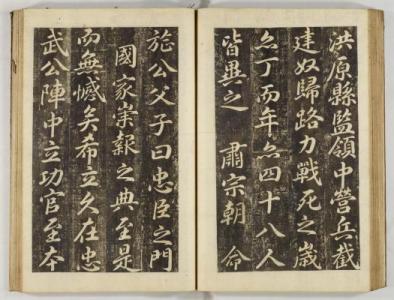 洪原縣監領中營兵截
建奴歸路力戰死之歲
亦丁而年亦四十八人
皆異之　肅宗朝　命
旌公父子曰忠臣之門
國家崇報之典至是
而無憾矣希立久在忠
武公陣中立功官至本